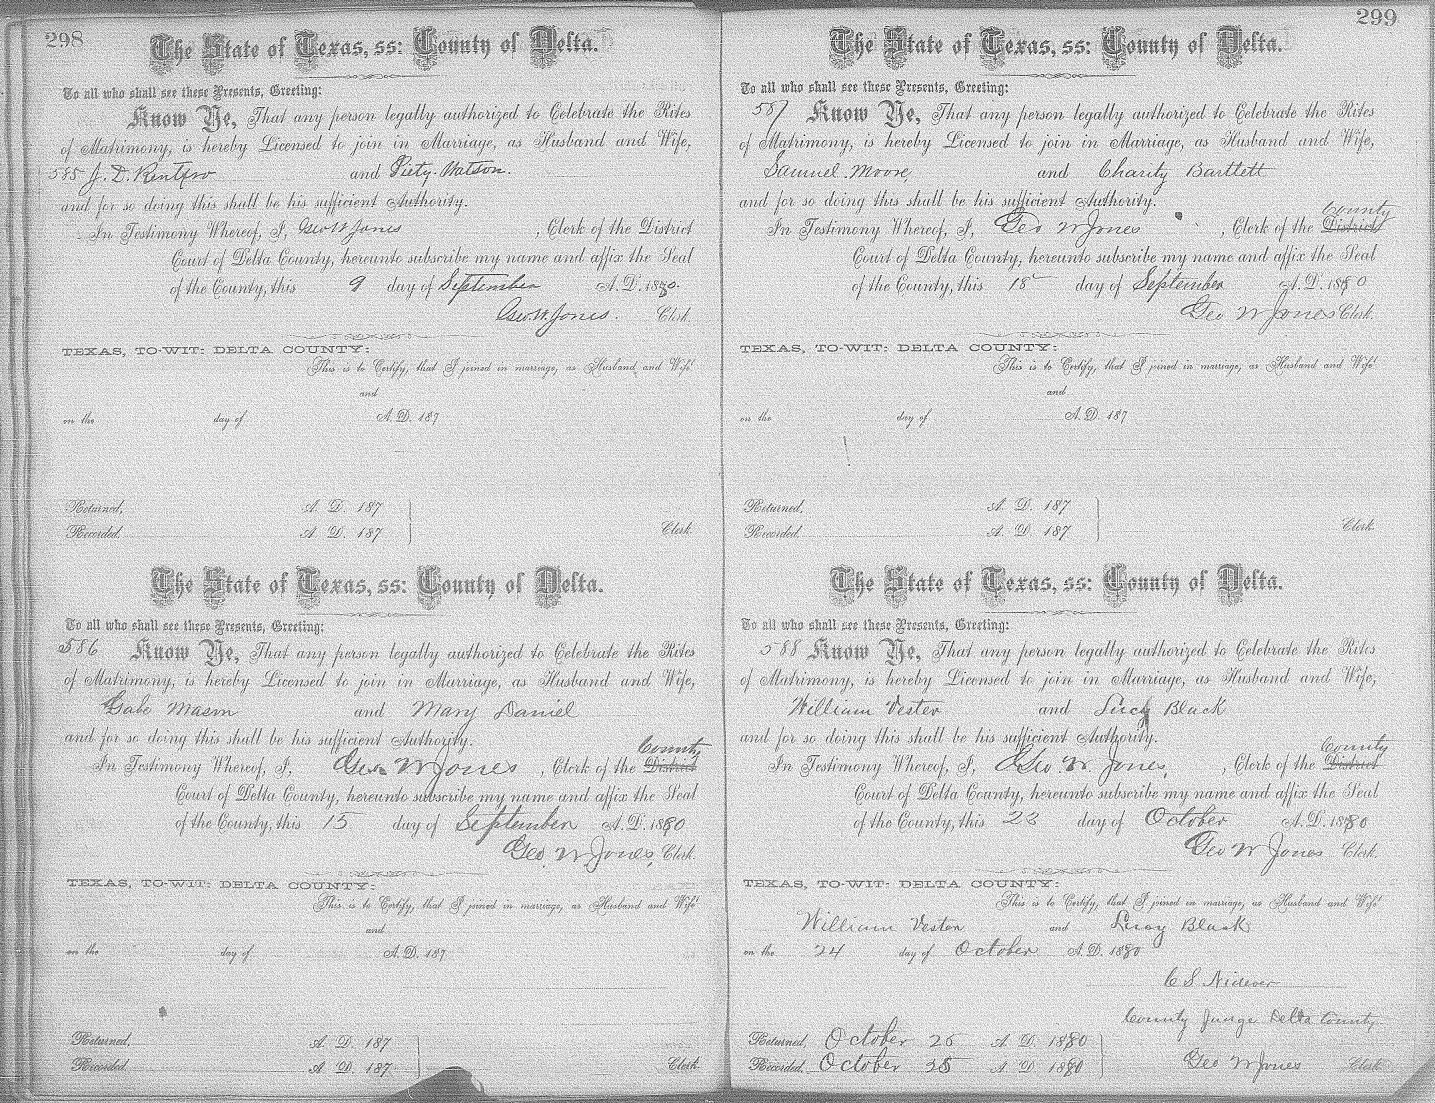 298
The State of Texas, ss: County of Delta.
To all who shall see these Presents, Greeting:
Know Ye, That any person legally authorized to Celebrate the Rites
of Matrimony, is hereby Licensed to join in Marriage, as Husband and Wife,
585 J. D. Rentfro and Piety Watson.
and for so doing this shall be his sufficient Authority.
In Testimony Whereof, I, Geo W Jones , Clerk of the District
Court of Delta County, hereunto subscribe my name and affix the Seal
of the County, this 9 day of September A. D. 1880.
Geo. W. Jones. Clerk.
TEXAS, TO-WIT: DELTA COUNTY:
This is to Certify, that I joined in marriage, as Husband and Wife
and
on the day of A. D. 187
Returned, A. D. 187
Recorded, A. D. 187 Clerk.
The State of Texas, ss: County of Delta.
To all who shall see these Presents, Greeting:
586 Know Ye, That any person legally authorized to Celebrate the Rites
of Matrimony, is hereby Licensed to join in Marriage, as Husband and Wife,
Gabe Mason and Mary Daniel
and for so doing this shall be his sufficient Authority.
County
In Testimony Whereof, I, Geo. W Jones , Clerk of the District
Court of Delta County, hereunto subscribe my name and affix the Seal
of the County, this 15 day of September A. D. 1880
Geo. W. Jones, Clerk.
TEXAS, TO-WIT: DELTA COUNTY:
This is to Certify, that I joined in marriage, as Husband and Wife
and
on the day of A. D. 187
Returned, A. D. 187
Recorded, A. D. 187 Clerk.
299
The State of Texas, ss: County of Delta.
To all who shall see these Presents, Greeting:
587 Know Ye, That any person legally authorized to Celebrate the Rites
of Matrimony, is hereby Licensed to join in Marriage, as Husband and Wife,
Samuel Moore, and Charity Bartlett
and for so doing this shall be his sufficient Authority.
County
In Testimony Whereof, I, Geo W Jones , Clerk of the District
Court of Delta County, hereunto subscribe my name and affix the Seal
of the County, this 18 day of September A. D. 1880
Geo W Jones Clerk.
TEXAS, TO-WIT: DELTA COUNTY:
This is to Certify, that I joined in marriage, as Husband and Wife
and
on the day of A. D. 187
Returned, A. D. 187
Recorded, A. D. 187 Clerk.
The State of Texas, ss: County of Delta.
To all who shall see these Presents, Greeting:
588 Know Ye, That any person legally authorized to Celebrate the Rites
of Matrimony, is hereby Licensed to join in Marriage, as Husband and Wife,
William Vester and Lucy Black
and for so doing this shall be his sufficient Authority.
County
In Testimony Whereof, I, Geo. W. Jones, , Clerk of the District
Court of Delta County, hereunto subscribe my name and affix the Seal
of the County, this 23 day of October A. D. 1880
Geo W Jones Clerk.
TEXAS, TO-WIT: DELTA COUNTY:
This is to Certify, that I joined in marriage, as Husband and Wife
William Vester and Lucy Black
on the 24 day of October A. D. 1880
C S Nidever
County Judge Delta County
Returned, October 25 A. D. 1880
Recorded, October 25 A. D. 1880 Geo W Jones Clerk